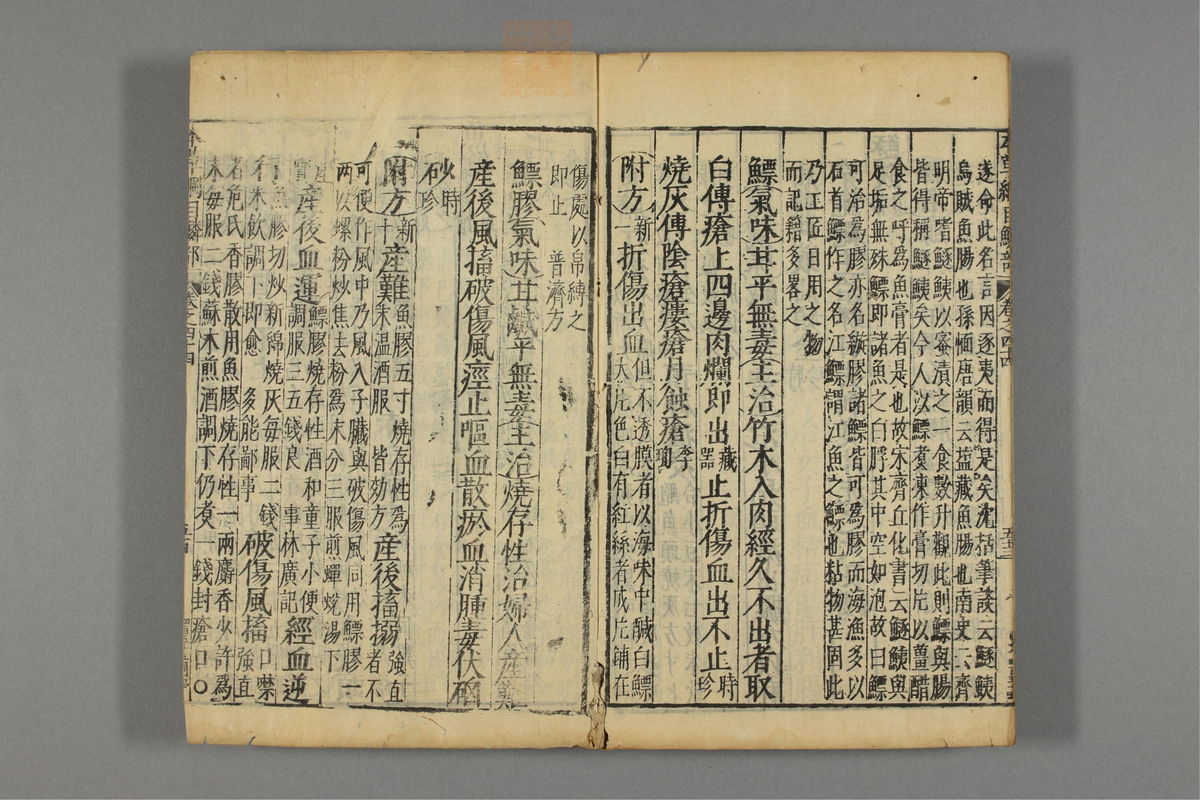 遂命此名言因逐夷而得是矣沈括筆談云鱁鮧
烏賊魚腸也孫愐唐韻云鹽藏魚腸也南史云齊
明帝嗜鱁鮧以蜜漬之一食數升觀此則鰾與腸
皆得稱鱁鮧矣今人以鰾煑凍作膏切片以薑醋
食之呼爲魚膏者是也故宋齊丘化書云鱁鮧與
足垢無殊鰾即諸魚之白脬其中空如泡故曰鰾
可治爲膠亦名縼膠諸鰾皆可爲膠而海漁多以
石首鰾作之名江鰾謂江魚之鰾也粘物甚固此
乃工匠日用之物
而記籍多畧之
鰾氣味甘平無毒主治竹木入肉經久不出者取
白傅瘡上四邊肉爛即出藏器止折傷血出不止時珍
燒灰傅陰瘡瘻瘡月蝕瘡李珣
附方新一折傷出血但不透膜者以海味中鹹白鰾
大片色白有紅絲者成片鋪在
傷處以帛縛之
即止 普濟方
鰾膠氣味甘鹹平無毒主治燒存性治婦人産難
産後風搐破傷風痙止嘔血散瘀血消腫毒伏硇
砂時珍
附方新十産難魚膠五寸燒存性爲
末温酒服 皆効方産後搐搦強直
者不
可便作風中乃風入子臟與破傷風同用鰾膠一
兩以螺粉炒焦去粉爲末分三服煎蟬蛻湯下
産寶産後血運鰾膠燒存性酒和童子小便
調服三五錢良 事林廣記經血逆
行魚膠切炒新綿燒灰每服二錢
米飲調下即愈 多能鄙事破傷風搐口噤
強直
者危氏香膠散用魚膠燒存性一兩麝香少許爲
末每服二錢蘇木煎酒調下仍煮一錢封瘡口〇